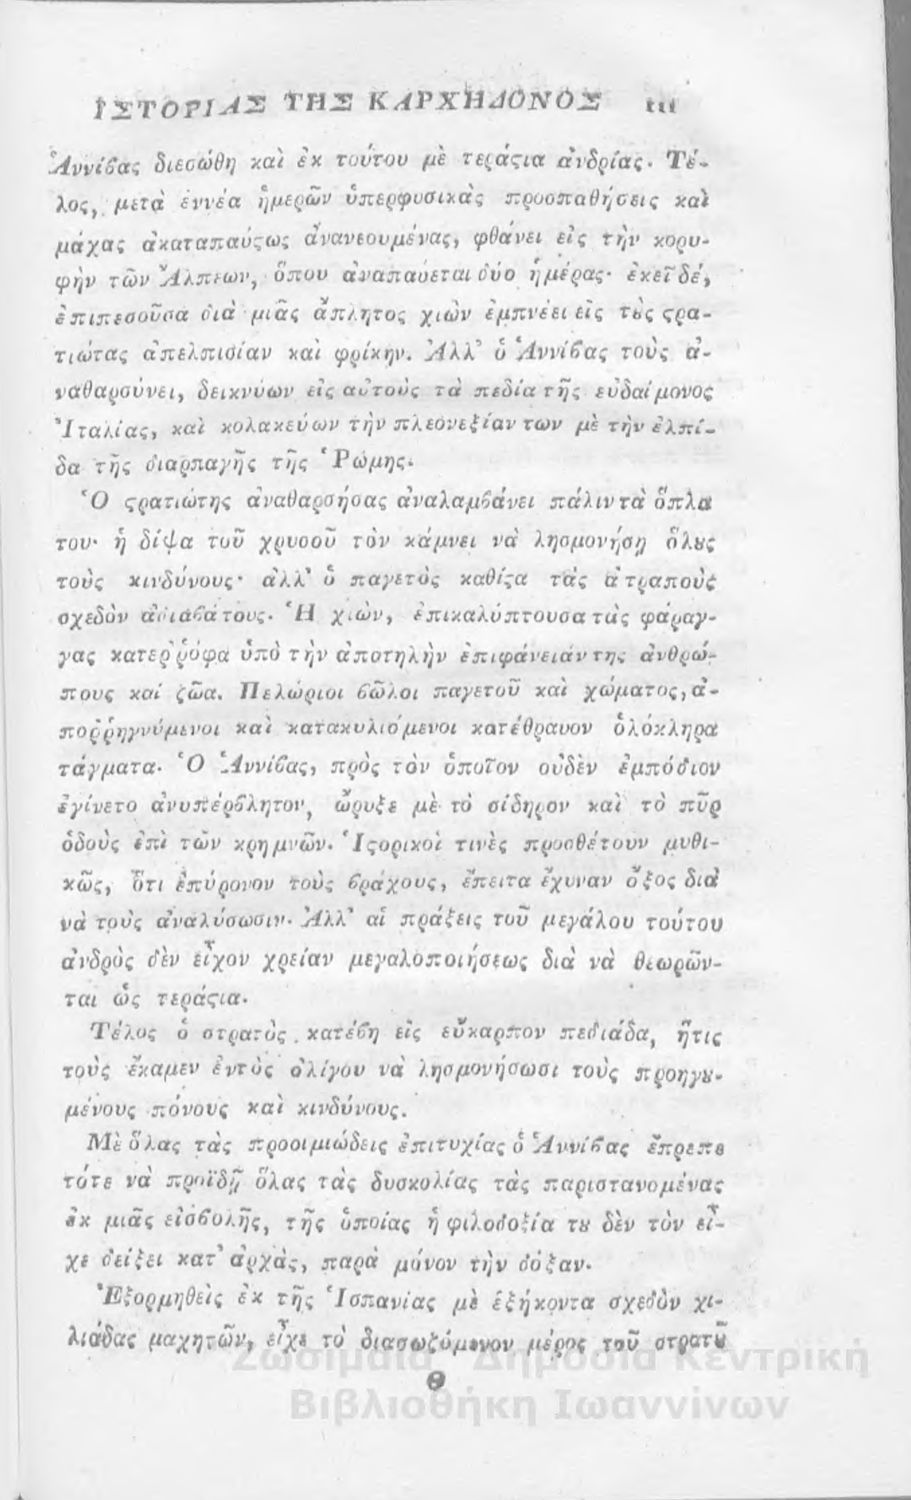 ἹΣΤΟΡΙΑΣ ΤΗΣ ΚΑΡΧΗΔΟΝΟΣ 111
Ἀννίϐας διεσώθη καὶ ἐκ τούτου μὲ τεράϛια ἀνδρίας. Τέ-
λος, μετὰ ἐννέα ἡμερῶν ὑπερφυσικὰς προσπαθήσεις καὶ
μάχας ἀκαταπαύϛως ἀνανεουμένας, φθάνει εἰς τὴν κορυ-
φὴν τῶν Ἄλπεων, ὅπου ἀναπαύεται δύο ἡμέρας· ἐκεῖ δέ,
ἐπιπεσοῦσα διὰ μιᾶς ἄπλητος χιὼν ἐμπνέει εἰς τȣ̀ς ϛρα-
τιώτας ἀπελπισίαν καὶ φρίκην. Ἀλλ' ὁ Ἀννίϐας τοὺς ἀ-
ναθαρσύνει, δεικνύων εἰς αὐτοὺς τὰ πεδία τῆς εὐδαίμονος
Ἰταλίας, καὶ κολακεύων τὴν πλεονεξίαν των μὲ τὴν ἐλπί-
δα τῆς διαρπαγῆς τῆς Ῥώμης.
Ὁ ϛρατιώτης ἀναθαρσήσας ἀναλαμϐάνει πάλιν τὰ ὅπλα
του· ἡ δίψα τοῦ χρυσοῦ τὸν κάμνει νὰ λησμονήσῃ ὅλȣς
τοὺς κινδύνους· ἀλλ' ὁ παγετὸς καθίϛα τὰς ἀτραποὺς
σχεδὸν ἀδιαϐάτους. Ἡ χιὼν, ἐπικαλύπτουσα τὰς φάραγ-
γας κατεῤῥόφα ὑπὸ τὴν ἀπατηλὴν ἐπιφάνειάν της ἀνθρώ-
πους καὶ ζῶα. Πελώριοι ϐῶλοι παγετοῦ καὶ χώματος, ἀ-
ποῤῥηγνύμενοι καὶ κατακυλιόμενοι κατέθραυον ὁλόκληρα
τάγματα. Ὁ Ἀννίϐας, πρὸς τὸν ὁποῖον οὐδὲν ἐμπόδιον
ἐγίνετο ἀνυπέρϐλητον, ὤρυξε μὲ τὸ σίδηρον καὶ τὸ πῦρ
ὁδοὺς ἐπὶ τῶν κρημνῶν. Ἱϛορικοί τινὲς προσθέτουν μυθι-
κῶς, ὅτι ἐπύρονον τοὺς ϐράχους, ἔπειτα ἔχυναν ὄξος διὰ
νὰ τοὺς ἀναλύσωσιν. Ἀλλ' αἱ πράξεις τοῦ μεγάλου τούτου
ἀνδρὸς δὲν εἶχον χρείαν μεγαλοποιήσεως διὰ νὰ θεωρῶν-
ται ὡς τεράϛια.
Τέλος ὁ στρατὸς κατέϐη εἰς εὔκαρπον πεδιάδα, ἥτις
τοὺς ἔκαμεν ἐντὸς ὀλίγου νὰ λησμονήσωσι τοὺς προηγȣ-
μένους πόνους καὶ κινδύνους.
Μὲ ὅλας τὰς προοιμιώδεις ἐπιτυχίας ὁ Ἀννίϐας ἔπρεπε
τότε νὰ προϊδῇ ὅλας τὰς δυσκολίας τὰς παριστανομένας
ἐκ μιᾶς εἰσϐολῆς, τῆς ὁποίας ἡ φιλοδοξία τȣ δὲν τὸν εἶ-
χε δείξει κατ' ἀρχὰς, παρὰ μόνον τὴν δόξαν.
Ἐξορμηθεὶς ἐκ τῆς Ἱσπανίας μὲ ἑξήκοντα σχεδὸν χι-
λιάδας μαχητῶν, εἶχε τὸ διασωζόμενον μέρος τοῦ στρατȣ͂
Θ
Ζωσιμαία Δημόσια Κεντρική
Βιβλιοθήκη Ιωαννίνων